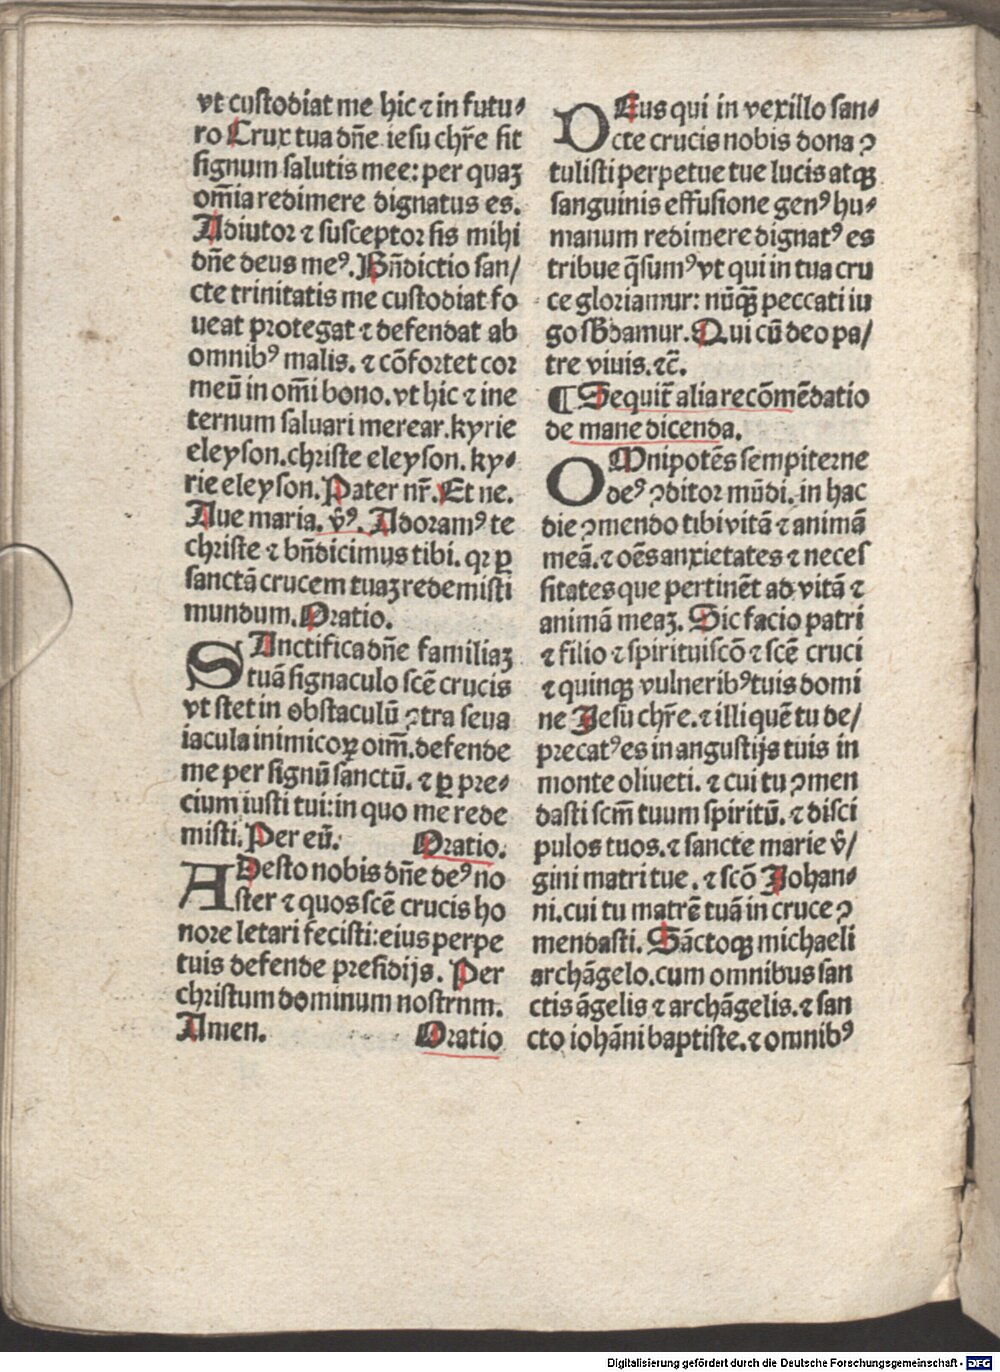 vt custodiat me hic ⁊ in futu⸗
ro Crux tua dñe iesu chr̃e sit
signum salutis mee: per quaʒ
om̃ia redimere dignatus es.
Adiutor ⁊ susceptor sis mihi
dñe deus meꝰ. Bñdictio san/
cte trinitatis me custodiat fo
ueat protegat ⁊ defendat ab
omnibꝰ malis. ⁊ cõfortet cor
meũ in om̃i bono. vt hic ⁊ ine
ternum saluari merear. kyrie
eleyson. christe eleyson. ky⸗
rie eleyson. Pater nr̃. Et ne.
Aue maria. v̾ꝰ. Adoramꝰ te
christe ⁊ bñdicimus tibi. qꝛ ꝑ
sanctã crucem tuaʒ redemisti
mundum. Oratio.
SAnctifica dñe familiaʒ
tuã signaculo scẽ crucis
vt stet in obstaculũ ꝯtra seua
iacula inimicoꝝ oim̃. defende
me per signũ sanctũ. ⁊ ꝑ pre⸗
cium iusti tui: in quo me rede
misti. Per eũ. Oratio.
ADesto nobis dñe deꝰ no
ster ⁊ quos scẽ crucis ho
nore letari fecisti: eius perpe
tuis defende presidijs. Per
christum dominum nostrnm.
Amen. Oratio
DEus qui in vexillo san⸗
cte crucis nobis dona ꝯ
tulisti perpetue tue lucis atqꝫ
sanguinis effusione genꝰ hu⸗
manum redimere dignatꝰ es
tribue q̃sumꝰ vt qui in tua cru
ce gloriamur: nũqꝫ peccati iu
go sƀdamur. Qui cũ deo pa/
tre viuis. ⁊c̃.
¶ Sequit̃ alia recõmẽdatio
de mane dicenda.
OMnipotẽs sempiterne
deꝰ ꝯditor mũdi. in hac
die ꝯmendo tibi vitã ⁊ animã
meã. ⁊ oẽs anxietates ⁊ neces
sitates que pertinẽt ad vitã ⁊
animã meaʒ. Sic facio patri
⁊ filio ⁊ spiritui scõ ⁊ scẽ cruci
⁊ quinqꝫ vulneribꝰ tuis domi
ne Jesu chr̃e. ⁊ illi quẽ tu de/
precatꝰ es in angustijs tuis in
monte oliueti. ⁊ cui tu ꝯmen
dasti scm̃ tuum spiritũ. ⁊ disci
pulos tuos. ⁊ sancte marie v̾/
gini matri tue. ⁊ scõ Johan⸗
ni. cui tu matrẽ tuã in cruce ꝯ
mendasti. Sãctoqꝫ michaeli
archãgelo. cum omnibus san
ctis ãgelis ⁊ archãgelis. ⁊ san
cto iohãni baptiste. ⁊ omnibꝰ
Digitalisierung gefördert durch die Deutsche Forschungsgemeinschaft - DFG